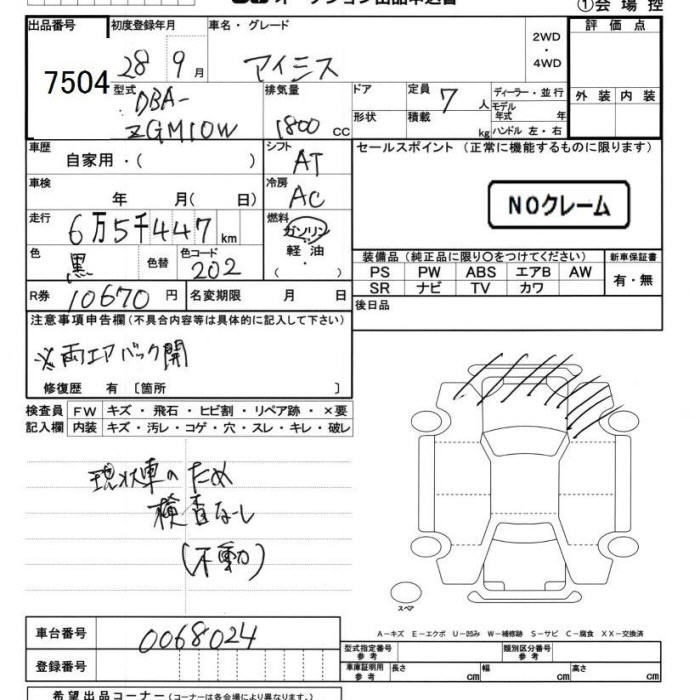 オークション出品申込書
①会 場 控
出品番号 初度登録年月 車名・グレード 2WD・4WD 評 価 点
7504 28 9月 アイシス
型式 DBA-ZGM10W 排気量 1800 CC ドア 定員 7 人 ディーラー・並行 外 装 内 装
形状 積載 kg モデル年式 年 ハンドル 左・右
車歴 自家用・( ) シフト AT セールスポイント (正常に機能するものに限ります)
車検 年 月( 日) 冷房 AC NOクレーム
走行 6万5千447 km 燃料 ガソリン 軽・油 ( )
色 黒 色替 色コード 202 装備品 (純正品に限り○をつけてください) 新車保証書
PS PW ABS エアB AW 有・無
SR ナビ TV カワ
R券 10670 円 名変期限 月 日 後日品
注意事項申告欄 (不具合内容等は具体的に記入して下さい)
※両エアバック開
修復歴 有 〔箇所 〕
検査員 FW キズ・飛石・ヒビ割・リペア跡・×要
記入欄 内装 キズ・汚レ・コゲ・穴・スレ・キレ・破レ
現状車のため
検査なし
(不動)
スペア
A-キズ E-エクボ U-凹み W-補修跡 S-サビ C-腐食 XX-交換済
車台番号 0068024
型式指定番号 参考 類別区分番号 参考
登録番号 車庫証明用 参考 長さ cm 幅 cm 高さ cm
希望出品コーナー (コーナーは各会場により異なります。)